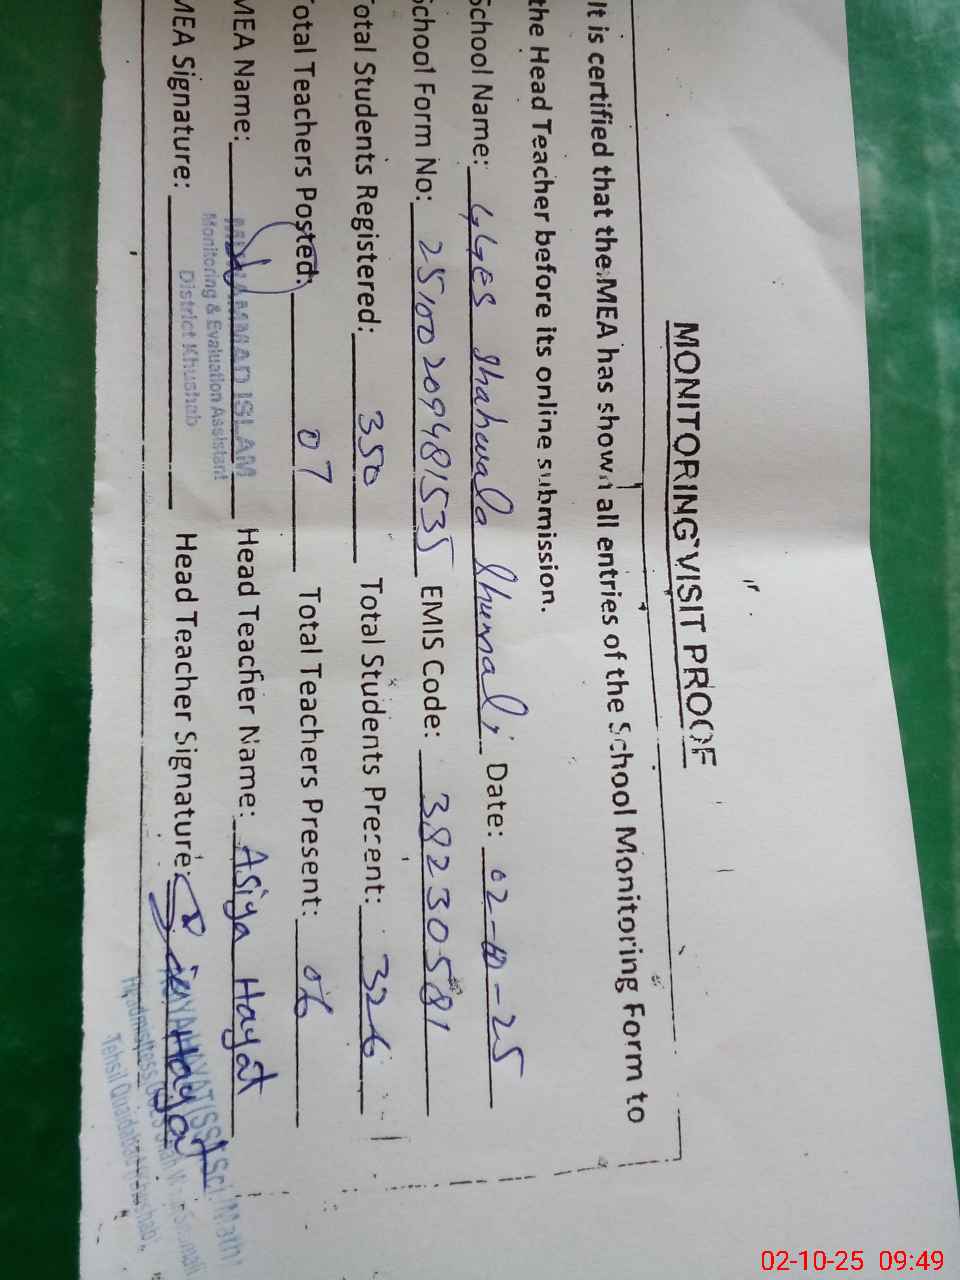 MONITORING VISIT PROOF
It is certified that the MEA has shown all entries of the School Monitoring Form to
the Head Teacher before its online submission.
School Name: GGES Shahwala Shumali Date: 02-10-25
School Form No: 25100209481535 EMIS Code: 38230581
Total Students Registered: 350 Total Students Present: 326
Total Teachers Posted: 07 Total Teachers Present: 06
MEA Name: MUHAMMAD ISLAM Head Teacher Name: Asiya Hayat
Monitoring & Evaluation Assistant
District Khushab
MEA Signature: Head Teacher Signature: Asiya Hayat
ASIYA HAYAT (SST Sci/Math)
Headmistress GGES Shah Wala Shumali
Tehsil Quaidabad Khushab
02-10-25 09:49